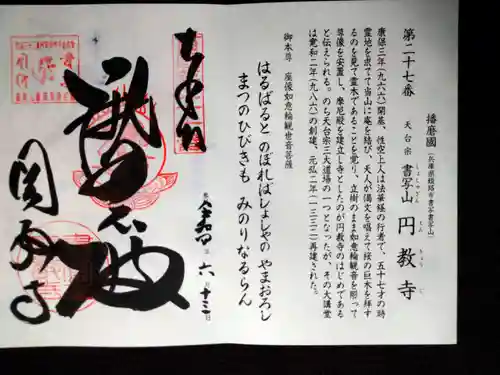 第二十七番
播磨國
(兵庫県姫路市書写書写山)
天台宗 書写山 円教寺
しょしゃざん えんぎょうじ
康保三年(九六六)開基、性空上人は法華経の行者で、五十七才の時
霊地を求めて当山に庵を結び、天人が偈文を唱えて桜の巨木を拝す
るのを見て霊木であることを覚り、立樹のまま如意輪観音を彫って
尊像を安置し、摩尼殿を建立し寺としたのが円教寺のはじめである
と伝えられる。のち天台宗三大道場の一つとなったが、その大講堂
は寛和二年(九八六)の創建、元弘二年(一三三二)再建された。
御本尊 座像如意輪観世音菩薩
はるばると のぼればしょしゃの やまおろし
まつのひびきも みのりなるらん
令和四年 六月十三日
圓教寺